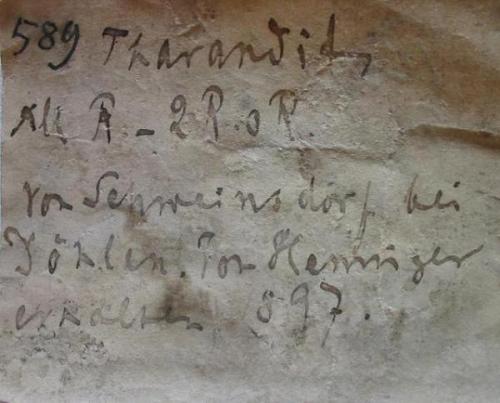 589 Tharandit,
R - 2R. oR.
von Schweinsdorf bei
Döhlen. Von Henniger
erhalten 897.